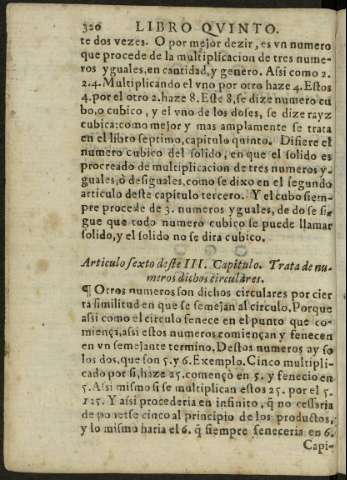 320 LIBRO QVINTO.
te dos vezes. O por mejor dezir, es vn numero
que procede de la multiplicacion de tres nume-
ros yguales, en cantidad, y genero. Assi como 2.
2.4. Multiplicando el vno por otro haze 4. Estos
4. por el otro 2. haze 8. Este 8, se dize numero cu
bo, o cubico, y el vno de los doses, se dize rayz
cubica: como mejor y mas amplamente se trata
en el libro septimo, capitulo quinto. Difiere el
numero cubico del solido, en que el solido es
procreado de multiplicacion de tres numeros y-
guales, ò desiguales, como se dixo en el segundo
articulo deste capitulo tercero. Y el cubo siem-
pre procede de 3. numeros yguales, de do se si-
gue que todo numero cubico se puede llamar
solido, y el solido no se dira cubico.
Articulo sexto deste III. Capitulo. Trata de nu-
meros dichos circulares.
¶ Otros numeros son dichos circulares por cier
ta similitud en que se semejan al circulo. Porque
assi como el circulo fenece en el punto que co-
miença, assi estos numeros comiençan y fenecen
en vn semejante termino. Destos numeros ay so
los dos, que son 5. y 6. Exemplo. Cinco multipli-
cado por si, haze 25. començò en 5. y fenecio en
5. Assi mismo si se multiplican estos 25. por el 5.
125. Y assi procederia en infinito, q̃ no cessaria
de ponerse cinco al principio de los productos,
y lo mismo haria el 6. q̃ siempre feneceria en 6.
Capi-